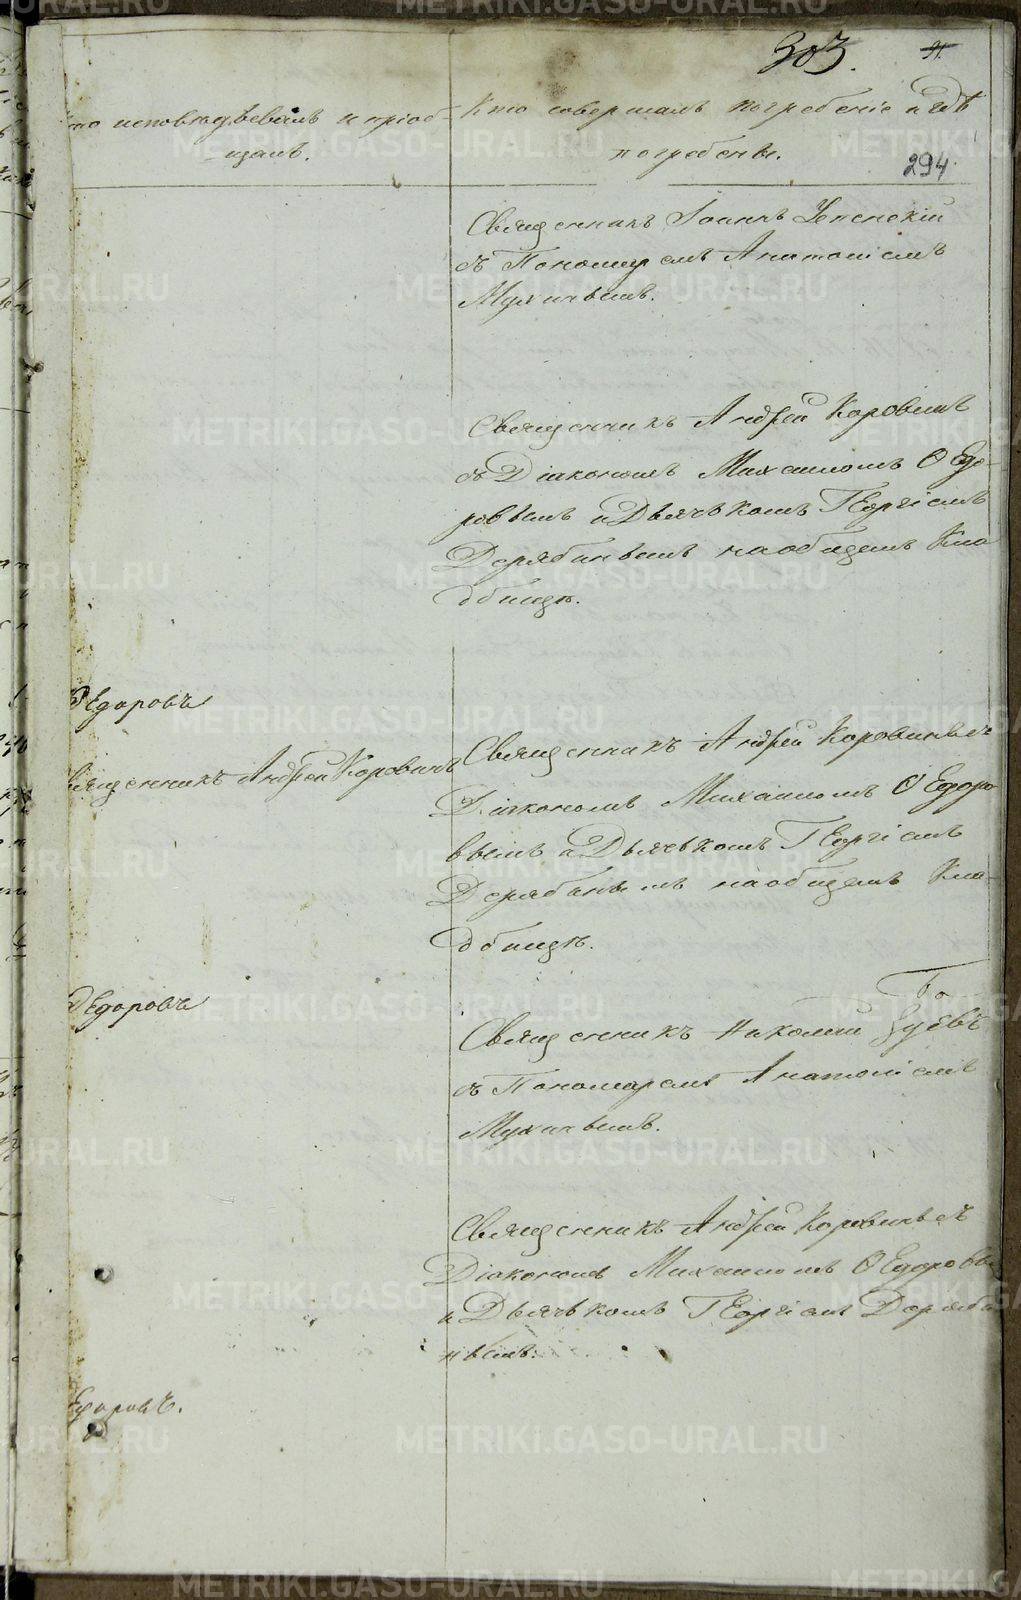 303. 91.
Кто исповѣдывалъ и пріоб-
щалъ.
Кто совершалъ погребеніе и гдѣ
погребены.
294.
Священникъ Іоаннъ Успенскій
съ Пономаремъ Анатоліемъ
священникъ Андрей Коровинъ
съ Діакономъ Михаиломъ Ѳедо-
ровымъ и Дьячькомъ Георгіемъ
Дерябинымъ на общемъ Кла
дбищѣ.
Ѳедоровъ
Священникъ Андрей Коровинъ съ
священникъ Андрей Коровинъ
Діакономъ Михаиломъ Ѳедоро
вымъ и Дьячькомъ Георгіемъ
Дерябинымъ на общемъ Кла-
дбищѣ.
Ѳедоровъ
Священникъ Николай
съ Пономаремъ Анатоліемъ
Священникъ Андрей Коровинъ съ
Діакономъ Михаиломъ Ѳедоровы
и Дьячькомъ Георгіемъ Деряби
нымъ.
Ѳедоровъ.
METRIKI.GASO-URAL.RU